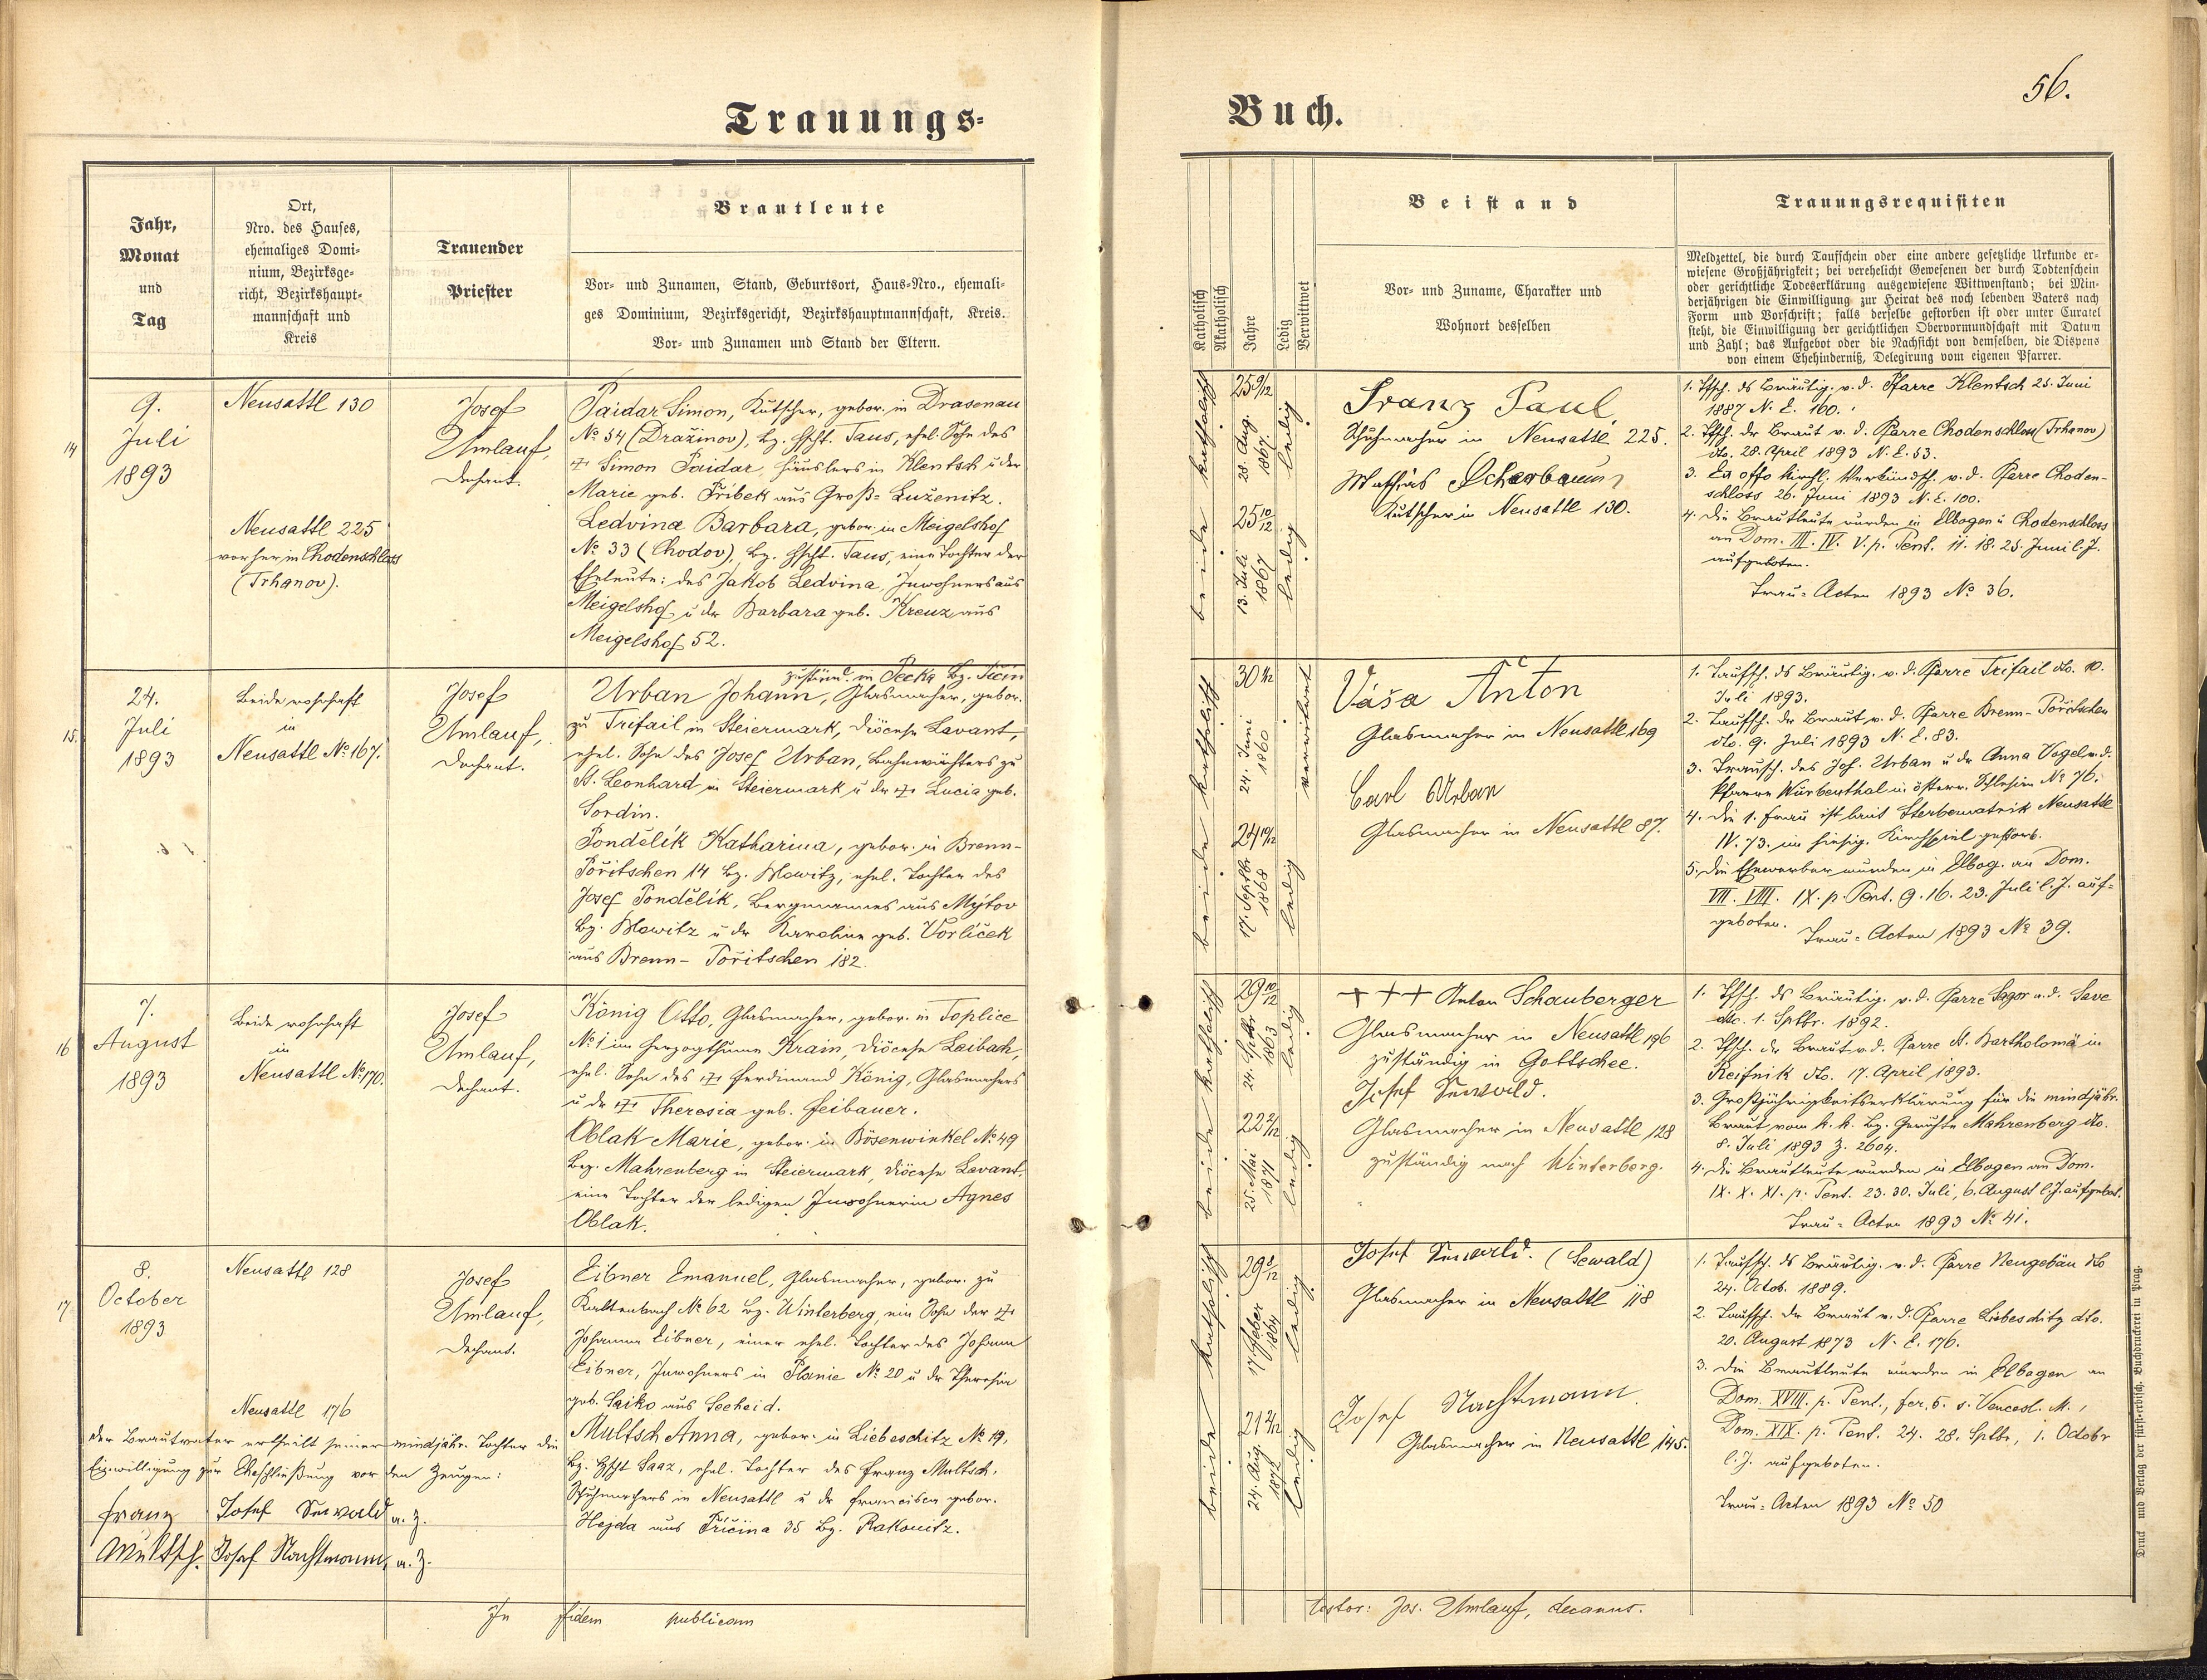 56.
Trauungs-
Buch.
Jahr,
Monat
und
Tag
Ort,
Nro. des Hauses,
ehemaliges Domi-
nium, Bezirksge-
richt, Bezirkshaupt-
mannschaft und
Kreis
Trauender
Priester
Brautleute
Vor- und Zunamen, Stand, Geburtsort, Haus-Nro., ehemali-
ges Dominium, Bezirksgericht, Bezirkshauptmannschaft, Kreis.
Vor- und Zunamen und Stand der Eltern.
Katholisch
Akatholisch
Jahre
Ledig
Verwittwet
Beistand
Vor- und Zuname, Charakter und
Wohnort desselben
Trauungsrequisiten
Meldzettel, die durch Taufschein oder eine andere gesetzliche Urkunde er-
wiesene Großjährigkeit; bei verehelicht Gewesenen der durch Todtenschein
oder gerichtliche Todeserklärung ausgewiesene Wittwenstand; bei Min-
derjährigen die Einwilligung zur Heirat des noch lebenden Vaters nach
Form und Vorschrift; falls derselbe gestorben ist oder unter Curatel
steht, die Einwilligung der gerichtlichen Obervormundschaft mit Datum
und Zahl; das Aufgebot oder die Nachsicht von demselben, die Dispens
von einem Ehehinderniß, Delegirung vom eigenen Pfarrer.
14
9.
Juli
1893
Neusattl 130
Neusattl 225
vorher in Chodenschloss
(Trhanov).
Josef
Umlauf,
Dechant.
Paidar Simon, Kutscher, gebor. in Drasenau
No 54 (Dražinov), Bz. Hscht. Taus, ehel. Sohn des
Simon Paidar, Häuslers in Klentsch u der
Marie geb. Přibek aus Groß-Luženitz.
Ledvina Barbara, gebor. in Meigelshof
No 33 (Chodov), Bz. Hscht. Taus, eine Tochter der
Eheleute: des Jakob Ledvina, Inwohners aus
Meigelshof u der Barbara geb. Kreuz aus
Meigelshof 52.
beide katholisch
25 9/12
28. Aug. 1867.
ledig
25 10/12
13. Juli 1867
ledig
Franz Paul
Schuhmacher in Neusattl 225.
Mathias Scherbaum
Kutscher in Neusattl 130.
1. Tfsch. ds Bräutig. v. d. Pfarre Klentsch 25. Juni
1887 N. E. 160.
2. Tfsch. der Braut v. d. Pfarre Chodenschloss (Trhanov)
dto. 28. April 1893 N. E. 53.
3. Ex offo kirchl. Verkündsch. v. d. Pfarre Choden-
schloss 26. Juni 1893 N. E. 100.
4. Die Brautleute wurden in Elbogen u Chodenschloss
an Dom. III. IV. V. p. Pent. 11. 18. 25. Juni l. J.
aufgeboten.
Trau-Acten 1893 No 36.
15.
24.
Juli
1893
Beide wohnhaft
in
Neusattl No 167.
Josef
Umlauf,
Dechant.
zuständ. in Pecka Bz. Jičin
Urban Johann, Glasmacher, gebor.
zu Trifail in Steiermark, Diöcese Lavant,
ehel. Sohn des Josef Urban, Bahnwächters zu
St. Leonhard in Steiermark u der Lucia geb.
Sordin.
Pondělík Katharina, gebor. in Brenn-
Pořitschen 14 Bz. Blowitz, ehel. Tochter des
Josef Pondělík, Bergmannes aus Mýtov
Bz. Blowitz u der Karoline geb. Vorlíček
aus Brenn-Pořitschen 182.
beide katholisch
30 1/12
24. Juni 1860
verwitwet
24 10/12
17. Septbr. 1868
ledig
Váša Anton
Glasmacher in Neusattl 169
Carl Urban
Glasmacher in Neusattl 87.
1. Taufsch. ds Bräutig. v. d. Pfarre Trifail dto. 10.
Juli 1893.
2. Taufsch. der Braut v. d. Pfarre Brenn-Pořitschen
dto. 9. Juli 1893 N. E. 83.
3. Trausch. des Joh. Urban u der Anna Vogel v. d.
Pfarre Würbenthal in österr. Schlesien No 76.
4. Die 1. Frau ist laut Sterbematrik Neusattl
IV. 73. im hiesig. Kirchspiel gestorb.
5. Die Ehewerber wurden in Elbog. an Dom.
VII. VIII. IX. p. Pent. 9. 16. 23. Juli l. J. auf-
geboten.
Trau-Acten 1893 No 39.
16
7.
August
1893
Beide wohnhaft
in
Neusattl No 170.
Josef
Umlauf,
Dechant.
König Otto, Glasmacher, gebor. in Toplice
No 1 im Herzogthume Krain, Diöcese Laibach,
ehel. Sohn des Ferdinand König, Glasmachers
u der Theresia geb. Feibauer.
Oblak Marie, gebor. in Bösenwinkel No 49
Bez. Mahrenberg in Steiermark, Diöcese Lavant,
eine Tochter der ledigen Inwohnerin Agnes
Oblak.
beide katholisch
29 10/12
24. Septbr 1863
ledig
22 2/12
25. Mai 1871
ledig
+ + + Anton Schauberger
Glasmacher in Neusattl 196
zuständig in Gottschee.
Josef Sewald.
Glasmacher in Neusattl 128
zuständig nach Winterberg.
1. Tfsch. ds Bräutig. v. d. Pfarre Sagor a. d. Save
dto. 1. Sptbr. 1892.
2. Tfsch. der Braut v. d. Pfarre St. Bartholomä in
Reifnik dto. 17. April 1893.
3. Großjährigkeitserklärung für die mindjähr.
Braut vom k. k. Bz. Gerichte Mahrenberg dto.
8. Juli 1893 Z. 2604.
4. Die Brautleute wurden in Elbogen an Dom.
IX. X. XI. p. Pent. 23. 30. Juli, 6. August l. J. aufgebot.
Trau-Acten 1893 No 41.
17
8.
October
1893
Neusattl 128
Neusattl 176
Josef
Umlauf,
Dechant.
Der Brautvater ertheilt seiner mindjähr. Tochter die
Einwilligung zur Eheschließung vor den Zeugen:
Franz Josef Sewald a. Z.
Multsch. Josef Nachtmann, a. Z.
Eibner Emanuel, Glasmacher, gebor. zu
Kaltenbach No 62 Bz. Winterberg, ein Sohn der
Johanna Eibner, einer ehel. Tochter des Johann
Eibner, Inwohners in Planie No 20 u der Theresia
geb. Saiko aus Seeheid.
Multsch Anna, gebor. in Liebeschitz No 19,
Bz. Hscht Saaz, ehel. Tochter des Franz Multsch,
Schuhmachers in Neusattl u der Francisca gebor.
Hejda aus Přičina 35 Bz. Rakonitz.
beide katholisch
29 8/12
1864
ledig
21 2/12
24. Aug. 1872
ledig
Josef Sewald. (Sewald)
Glasmacher in Neusattl 118
Josef Nachtmann
Glasmacher in Neusattl 145.
1. Taufsch. ds Bräutig. v. d. Pfarre Neugebäu dto
24. Octob. 1889.
2. Taufsch. der Braut v. d. Pfarre Liebeschitz dto.
20. August 1873 N. E. 176.
3. Die Brautleute wurden in Elbogen an
Dom. XVIII. p. Pent., fer. 5. s. Vencesl. M.,
Dom. XIX. p. Pent. 24. 28. Sptbr, 1. Octobr
l. J. aufgeboten.
Trau-Acten 1893 No 50
In fidem publicam
testor: Jos. Umlauf, decanus.
Druck und Verlag der fürst-erzbisch. Buchdruckerei in Prag.